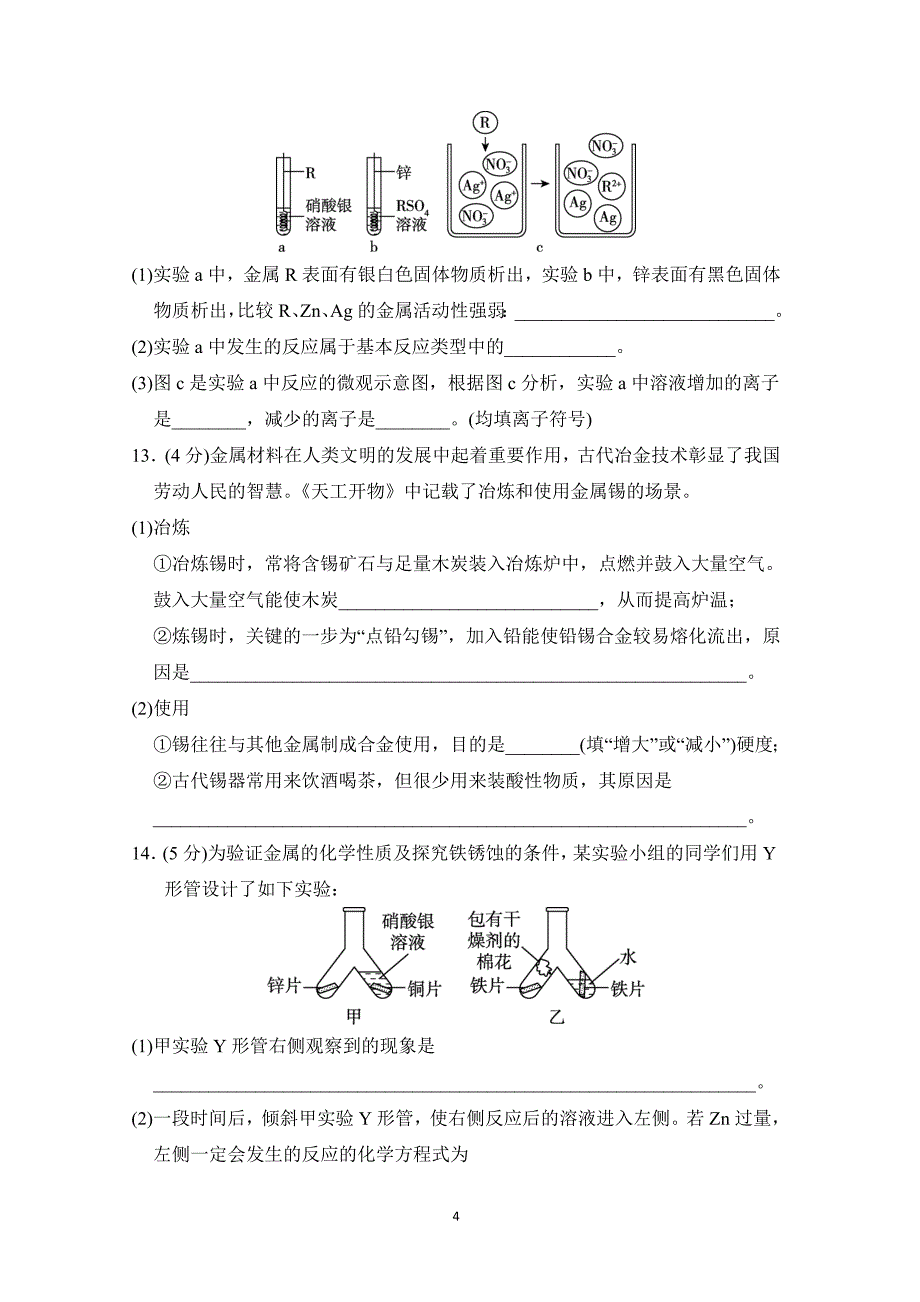 R
R
锌
硝酸银
溶液
RSO₄
溶液
NO₃⁻
Ag⁺
Ag⁺
NO₃⁻
NO₃⁻
NO₃⁻
R²⁺
Ag
Ag
a
b
c
(1)实验 a 中，金属 R 表面有银白色固体物质析出，实验 b 中，锌表面有黑色固体
物质析出，比较 R、Zn、Ag 的金属活动性强弱：____________________________。
(2)实验 a 中发生的反应属于基本反应类型中的____________。
(3)图 c 是实验 a 中反应的微观示意图，根据图 c 分析，实验 a 中溶液增加的离子
是________，减少的离子是________。(均填离子符号)
13．(4 分)金属材料在人类文明的发展中起着重要作用，古代冶金技术彰显了我国
劳动人民的智慧。《天工开物》中记载了冶炼和使用金属锡的场景。
(1)冶炼
①冶炼锡时，常将含锡矿石与足量木炭装入冶炼炉中，点燃并鼓入大量空气。
鼓入大量空气能使木炭____________________________，从而提高炉温；
②炼锡时，关键的一步为“点铅勾锡”，加入铅能使铅锡合金较易熔化流出，原
因是____________________________________________________________。
(2)使用
①锡往往与其他金属制成合金使用，目的是________(填“增大”或“减小”)硬度；
②古代锡器常用来饮酒喝茶，但很少用来装酸性物质，其原因是
________________________________________________________________。
14．(5 分)为验证金属的化学性质及探究铁锈蚀的条件，某实验小组的同学们用 Y
形管设计了如下实验：
硝酸银
溶液
锌片
铜片
甲
包有干
燥剂的
棉花
水
铁片
铁片
乙
(1)甲实验 Y 形管右侧观察到的现象是
_________________________________________________________________。
(2)一段时间后，倾斜甲实验 Y 形管，使右侧反应后的溶液进入左侧。若 Zn 过量，
左侧一定会发生的反应的化学方程式为
4